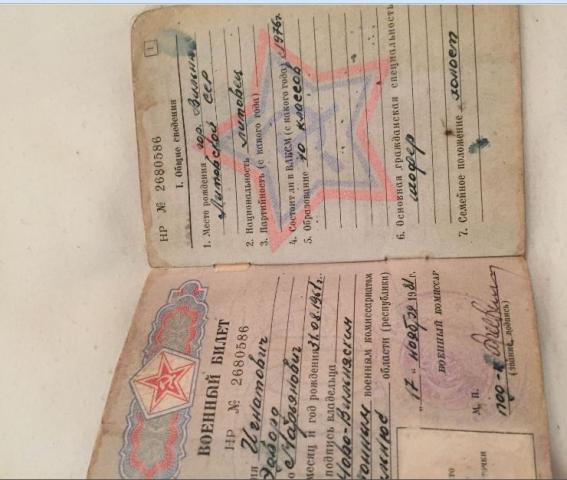 ВОЕННЫЙ БИЛЕТ
НР № 2680586
Игнатович
Марьянович
месяц и год рождения 31.08.1961г.
подпись владельца
военным комиссариатом
области (республики)
"17" ноября 1981г.
ВОЕННЫЙ КОМИССАР
М. П.
(звание, подпись)
1
НР № 2680586
I. Общие сведения
1. Место рождения гор. Вильнюс
Литовской ССР
2. Национальность литовец
3. Партийность (с какого года)
4. Состоит ли в ВЛКСМ (с какого года) с 1976г.
5. Образование 10 классов
6. Основная гражданская специальность
шофер
7. Семейное положение холост